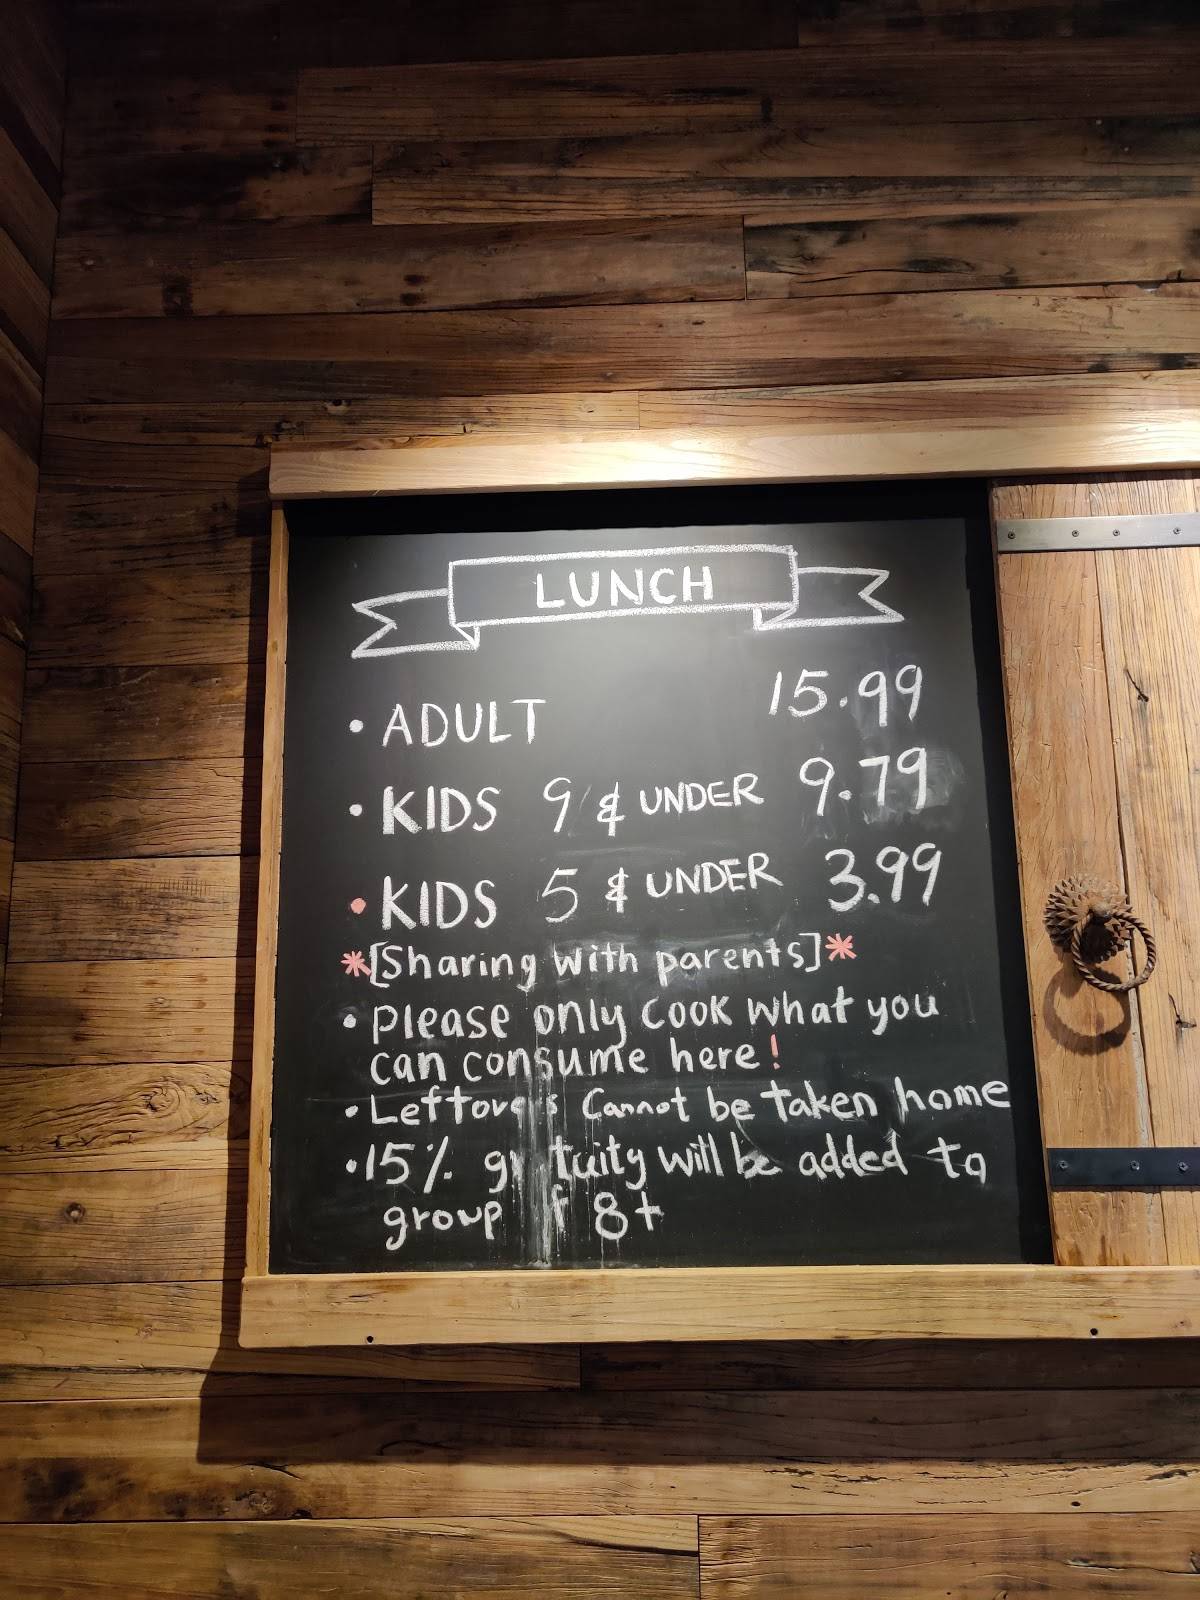 LUNCH
• ADULT 15.99
• KIDS 9 & UNDER 9.79
• KIDS 5 & UNDER 3.99
*[Sharing with parents]*
• please only cook what you
can consume here!
• Leftovers cannot be taken home
• 15% gratuity will be added to
group of 8+